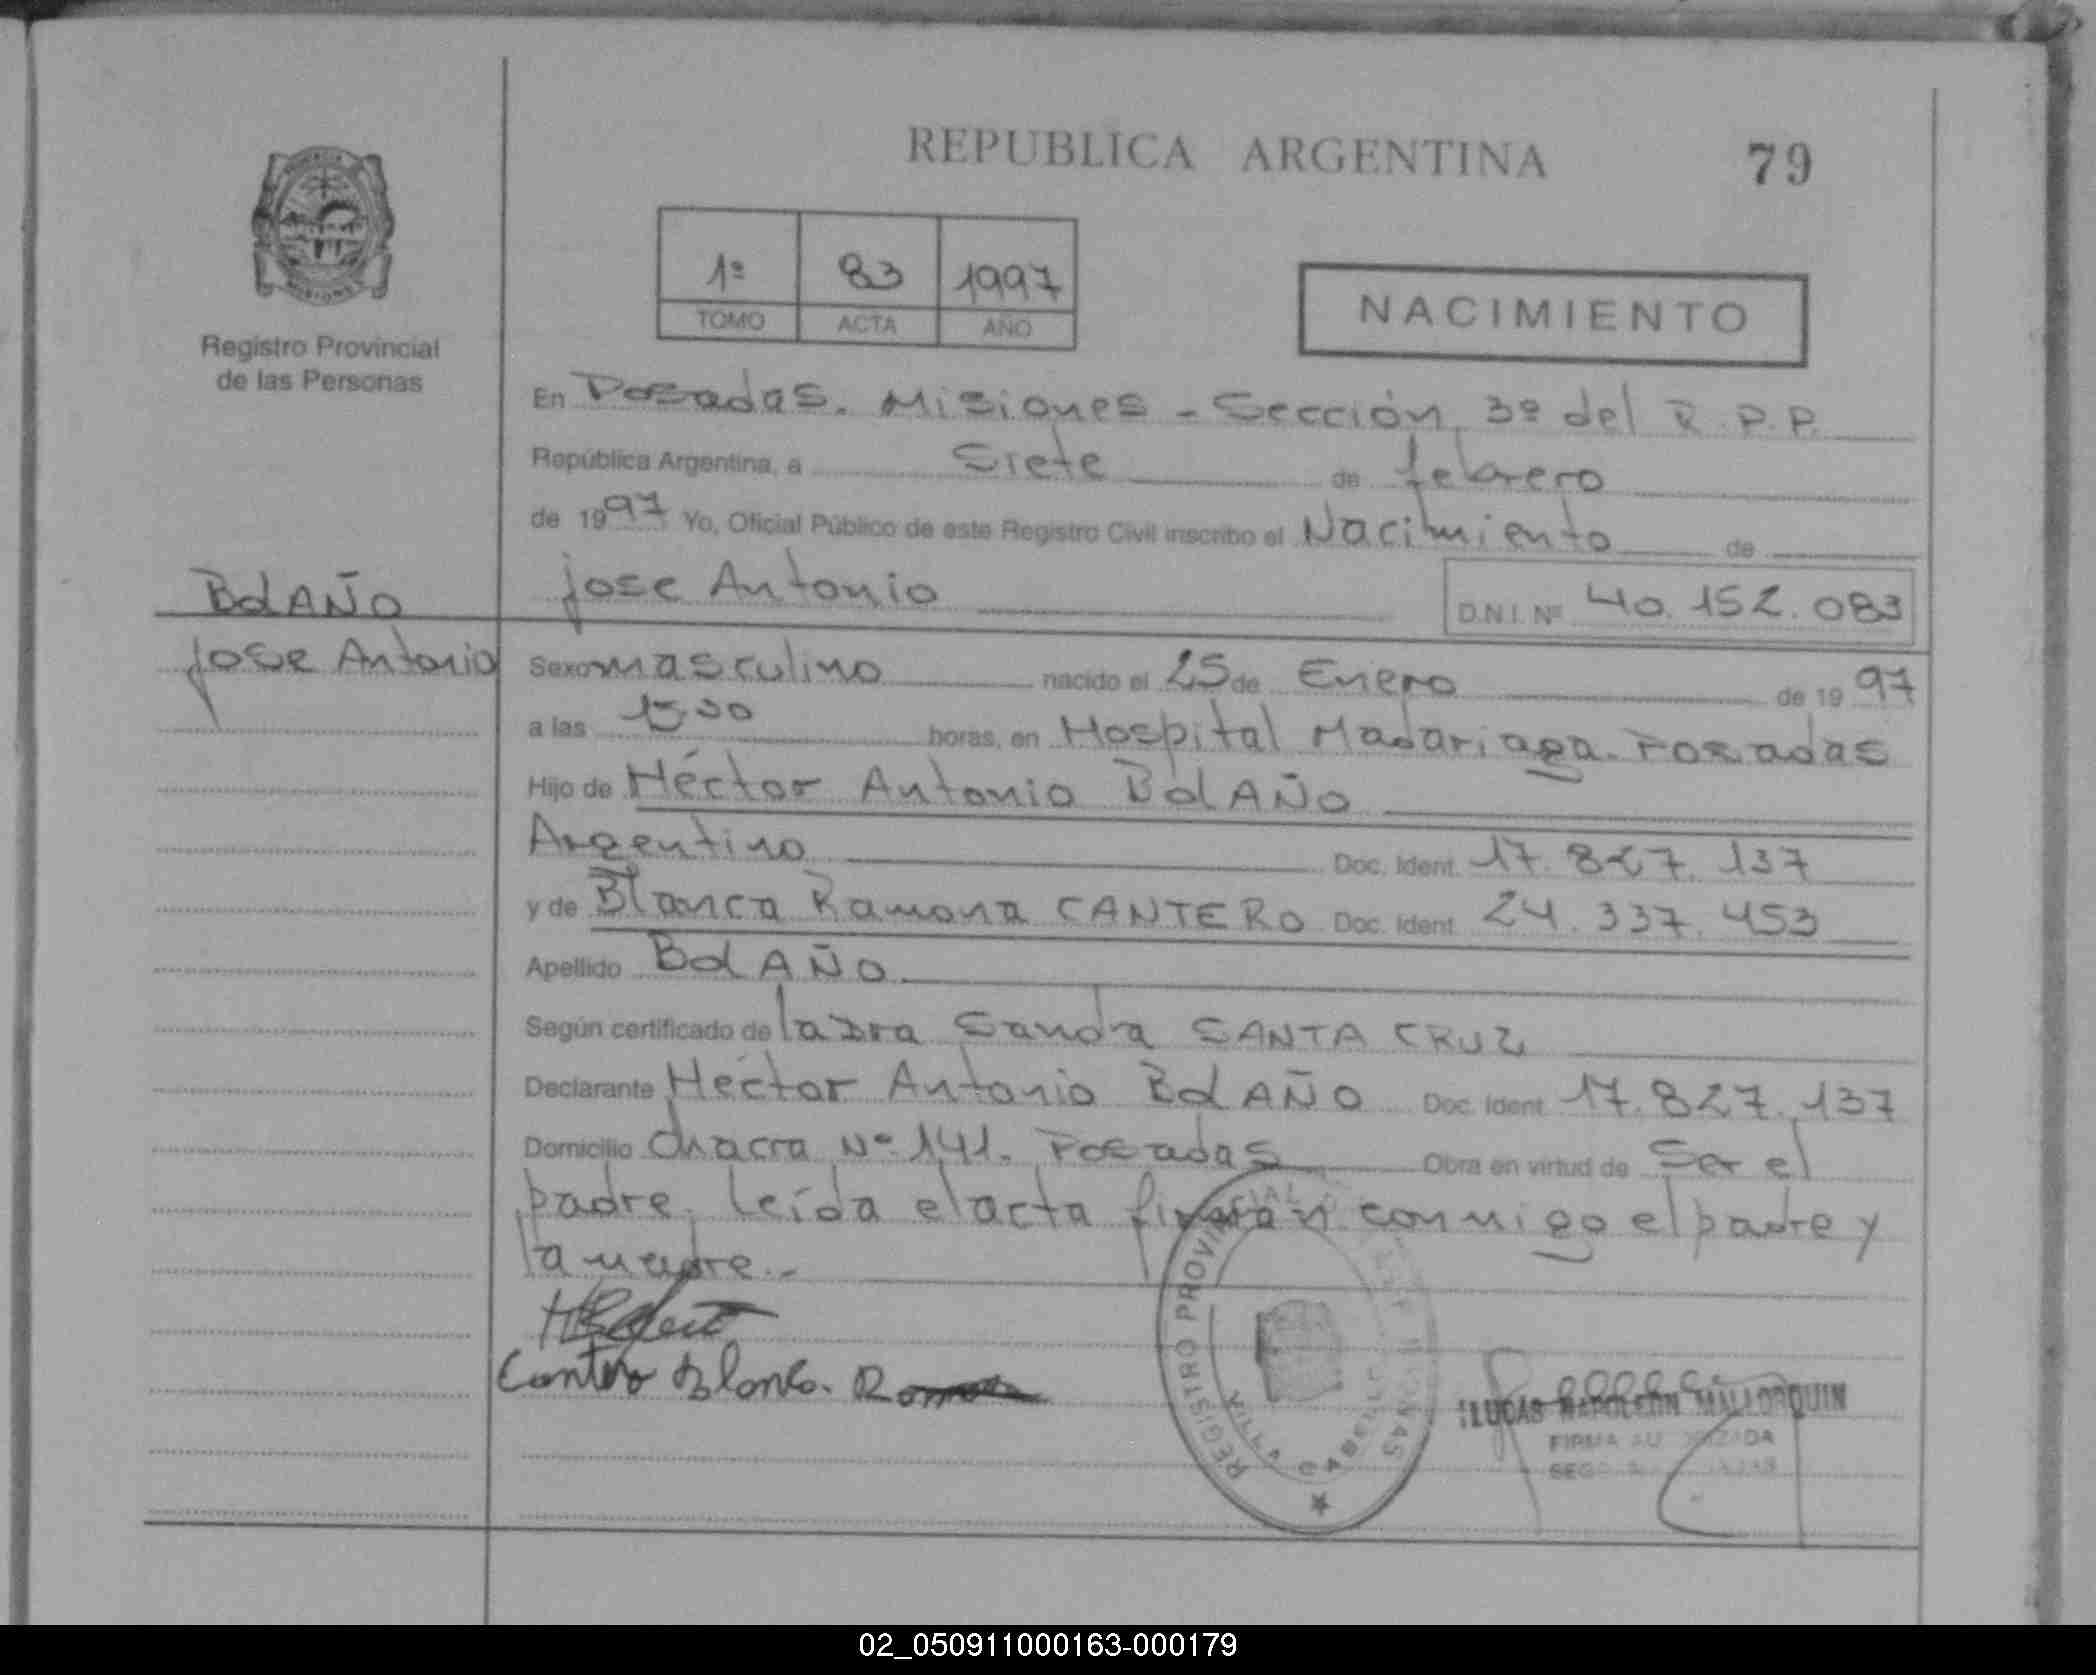 REPUBLICA ARGENTINA
79
1º 83 1997
TOMO ACTA AÑO
NACIMIENTO
Registro Provincial
de las Personas
En Posadas. Misiones - Sección 3º del R.P.P.
República Argentina, a siete de febrero
de 1997 Yo, Oficial Público de este Registro Civil inscribo el Nacimiento de
jose Antonio
D.N.I. Nº 40.152.083
BOLAÑO
jose Antonio
Sexo masculino nacido el 25 de Enero de 1997
a las horas, en Hospital Madariaga. Posadas
Hijo de Héctor Antonio BOLAÑO
Argentino Doc. Ident. 17.827.137
y de Blanca Ramona CANTERO Doc. Ident. 24.337.453
Apellido BOLAÑO
Según certificado de la Dra Sandra SANTA CRUZ
Declarante Héctor Antonio BOLAÑO Doc. Ident. 17.827.137
Domicilio chacra Nº 141. Posadas Obra en virtud de Ser el
padre. Leída el acta firman conmigo el padre y
la madre.-
Cantero Blanca. Ramona
REGISTRO PROVINCIAL DE LAS PERSONAS
VILLA CABELLO
LUCAS NAPOLEON MALLORQUIN
FIRMA AUTORIZADA
02_050911000163-000179